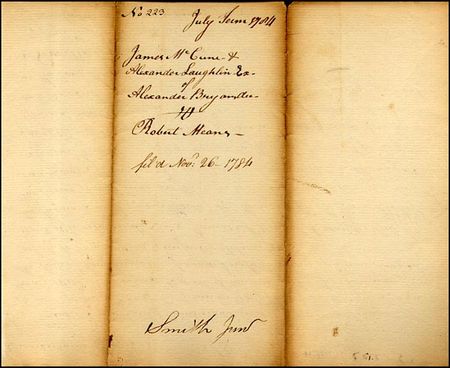 No 223 July Term 1784
James McCune &
Alexander Laughlin Ex
of
Alexander Bryan
vs
Robert Means
fil'd Novr. 26 1784
Smith Junr